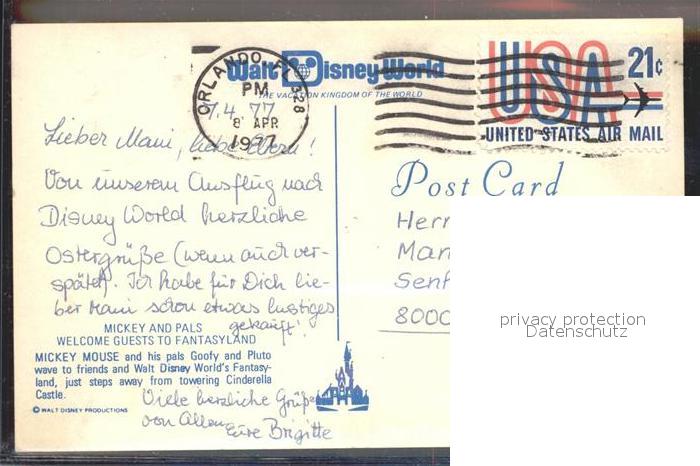 Walt Disney World
THE VACATION KINGDOM OF THE WORLD
ORLANDO, FL 328
PM
8 APR
1977
USA 21¢
UNITED STATES AIR MAIL
7.4.77
Lieber Mani, liebe Eltern!
Von unserem Ausflug nach
Disney World herzliche
Ostergrüße (wenn auch ver-
spätet). Ich habe für Dich lie-
ber Mani schon etwas lustiges
gekauft!
Post Card
Herr
Man
Senf
8000
privacy protection
Datenschutz
MICKEY AND PALS
WELCOME GUESTS TO FANTASYLAND
MICKEY MOUSE and his pals Goofy and Pluto
wave to friends and Walt Disney World's Fantasy-
land, just steps away from towering Cinderella
Castle.
© WALT DISNEY PRODUCTIONS
Viele herzliche Grüße
von Allen
Eure Brigitte